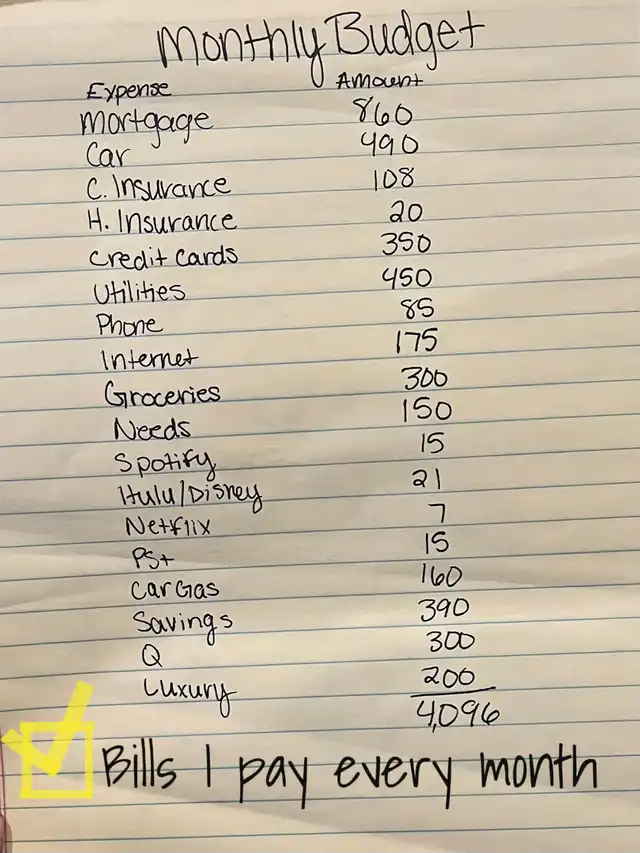 Monthly Budget
Expense Amount
Mortgage 860
Car 490
C. Insurance 108
H. Insurance 20
Credit Cards 350
Utilities 450
Phone 85
Internet 175
Groceries 300
Needs 150
Spotify 15
Hulu/Disney 21
Netflix 7
PS+ 15
Car Gas 160
Savings 390
Q 300
Luxury 200
4,096
Bills I pay every month